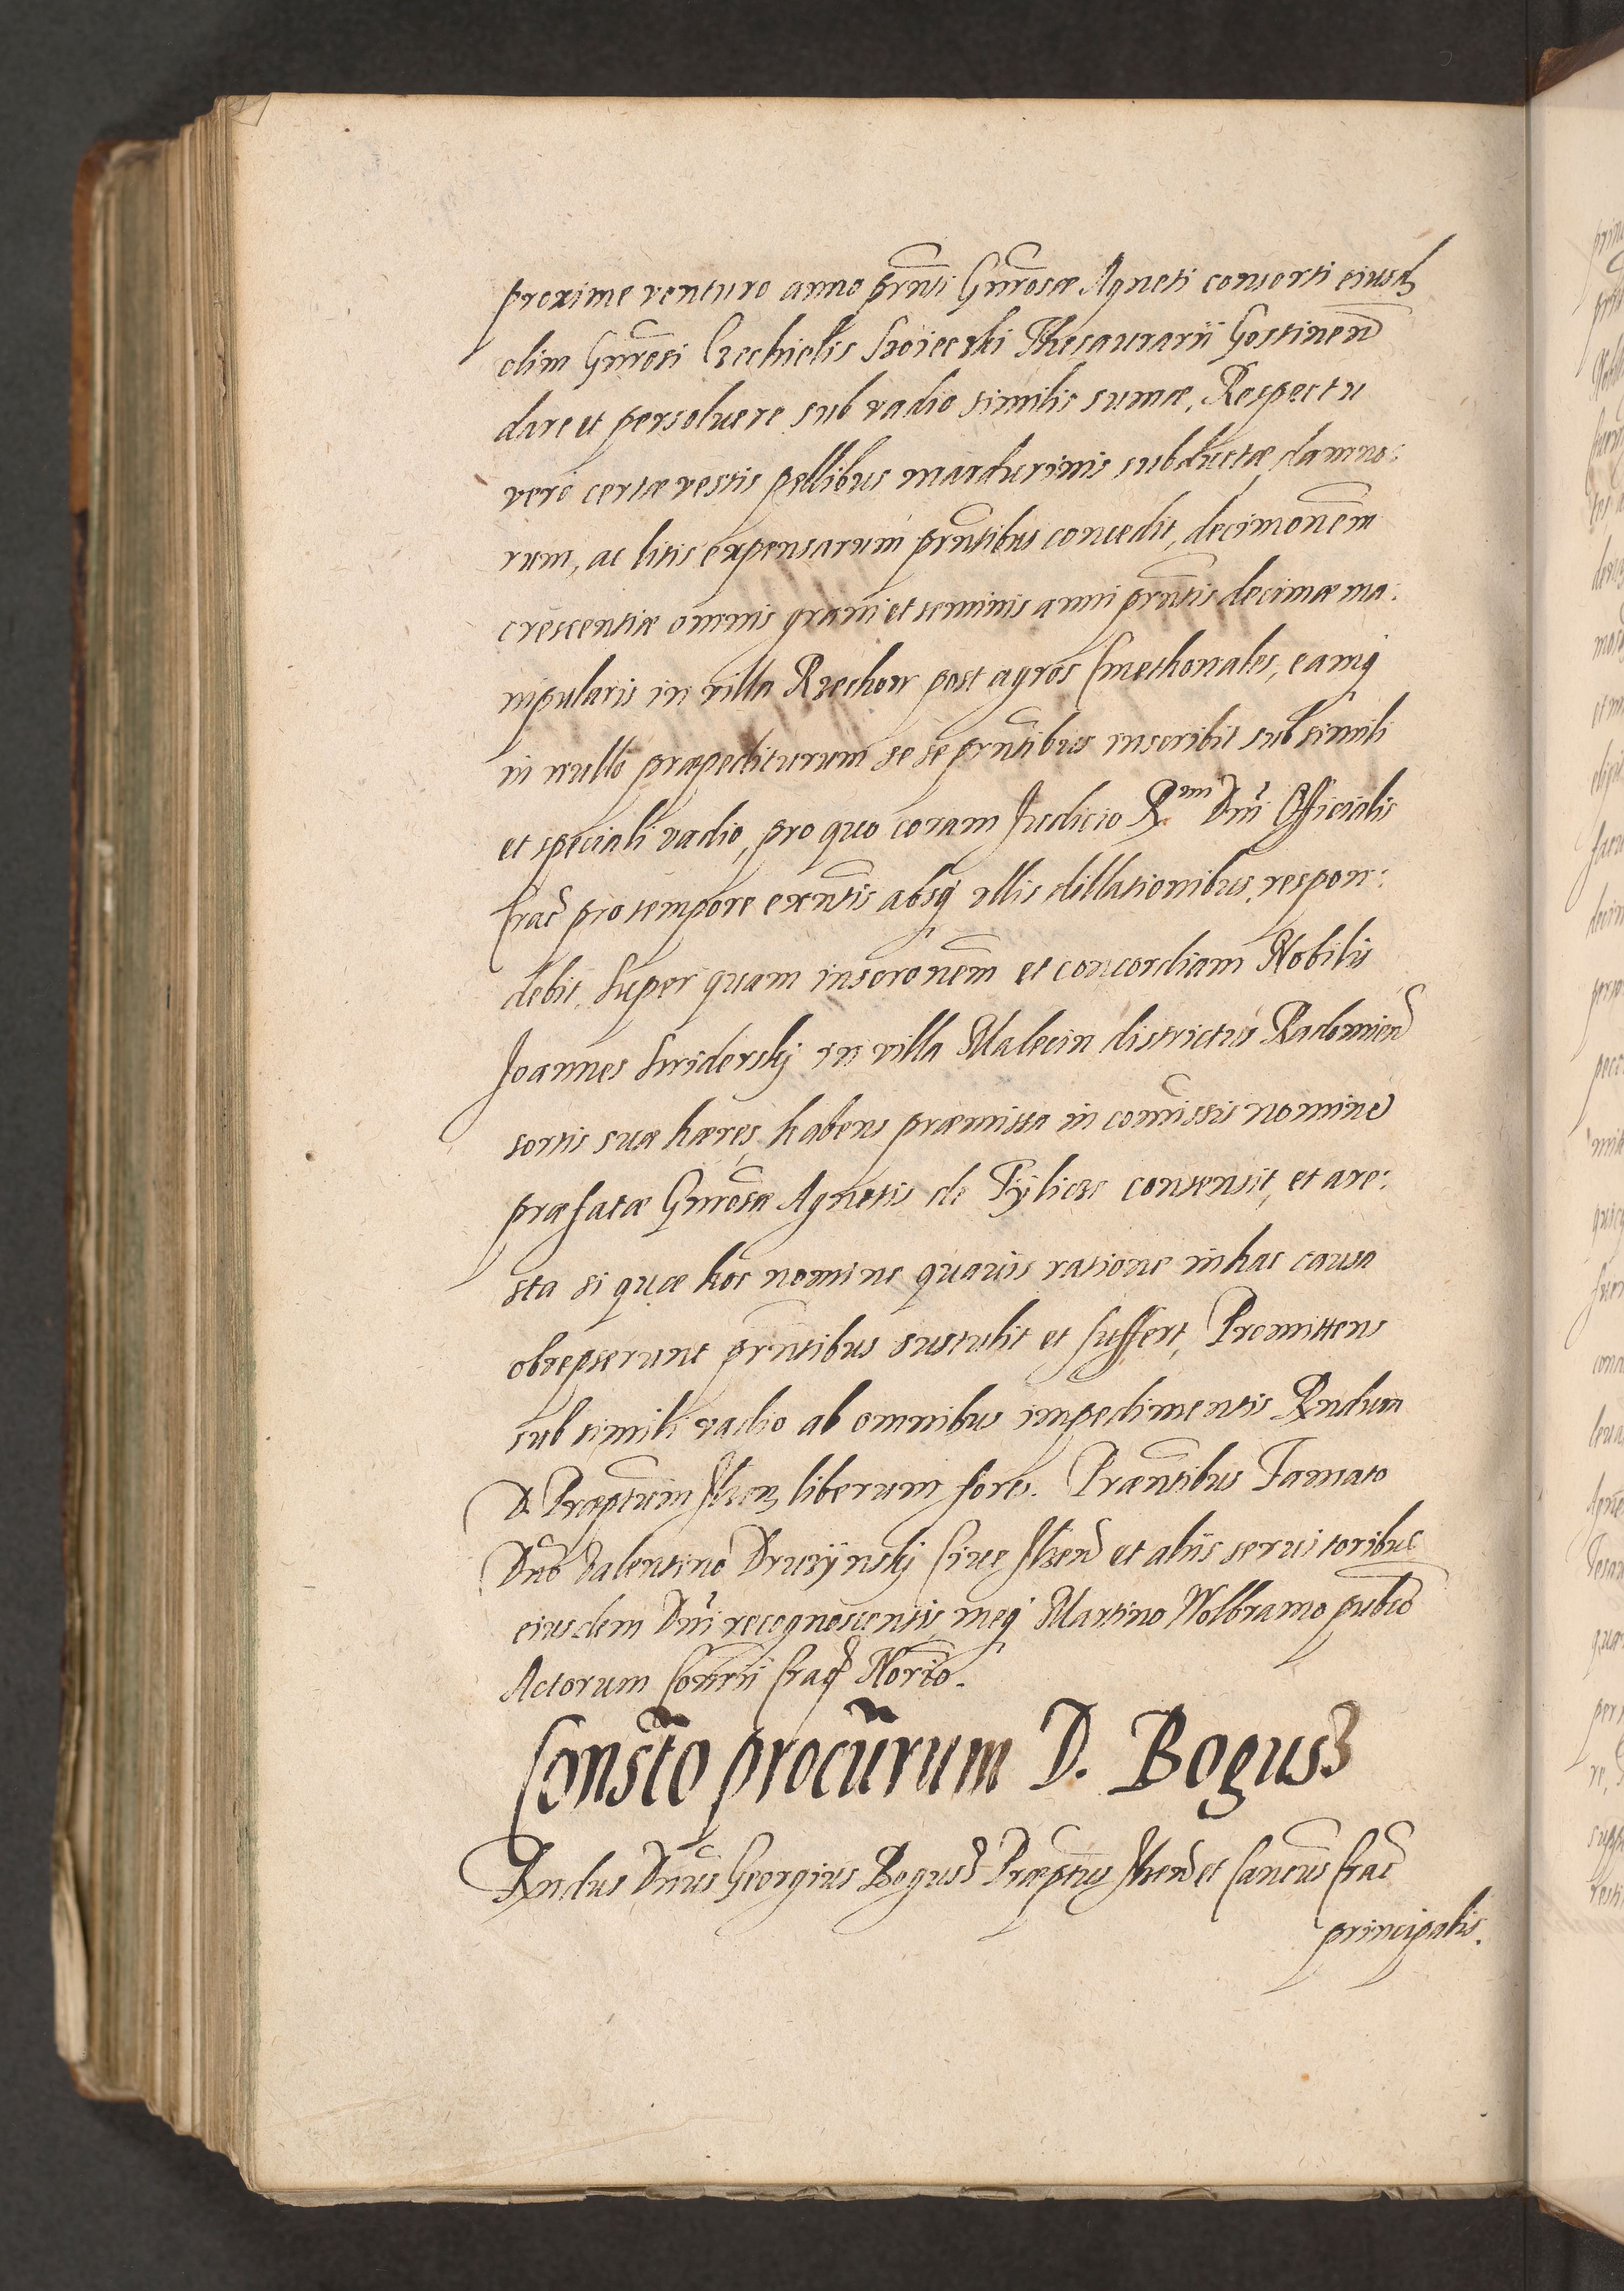 proxime venturo anno prnti Gnrosæ Agneti consorti eiusd
olim Gnrosi Ezechielis Troiecski Thesaurarii Gostinen
dare et persoluere sub vadio similis sumæ. Respectu
vero certæ vestis pellibus mardurinis subductæ, damno:
rum, ac litis expensarum prntibus concedit, decimonem
crescentiæ omnis grani et seminis anni prntis decimæ ma:
nipularis in villa Rzechow post agros Cmethonales, eamq
in nullo præpediturum se se prntibus inscribit sub simili
et speciali vadio, pro quo coram Judicio Rmi Dni Officialis
Crac pro tempore exntis absq ullis dillationibus respon:
debit. Super quam inscronem et concordiam Nobilis
Joannes Swiderskj in villa Malecin districtus Radomien
sortis suæ hæres, habens præmissa in comissis nomine
præfatæ Gnrosæ Agnetis de Pylicze consensit, et are:
sta si quæ hoc nomine quavis ratione in hac causa
obrepserunt prntibus sustulit et suffert, Promittens
sub simili vadio ab omnibus impedimentis Rndum
D. Præptum Ilzen liberum fore. Præntibus Famato
Dno Valentino Druzÿnskj Ciue Ilzen et aliis seruitoribus
eiusdem Dni recognoscentis, meq Martino Wolbramo pubco
Actorum Consrii Crac Norio.
Consto procurum D. Bogusz
Rndus Dnus Georgius Bogusz Præptus Ilzen et Cancus Crac
principalis.